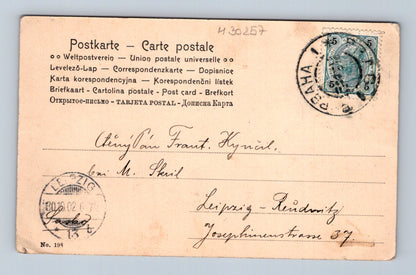 430257
Postkarte – Carte postale
Weltpostverein – Union postale universelle
Levelező-Lap – Correspondenzkarte – Dopisnice
Karta korespondencyjna – Korespondenční lístek
Briefkaart – Cartolina postale – Post card – Brefkort
Открытое письмо – TARJETA POSTAL – Дописна Карта
PRAHA 1
Ctěný Pán Frant. Kynčil.
bei M. Skril
Leipzig-Reudnitz
Josephinenstrasse 37
LEIPZIG
No. 194